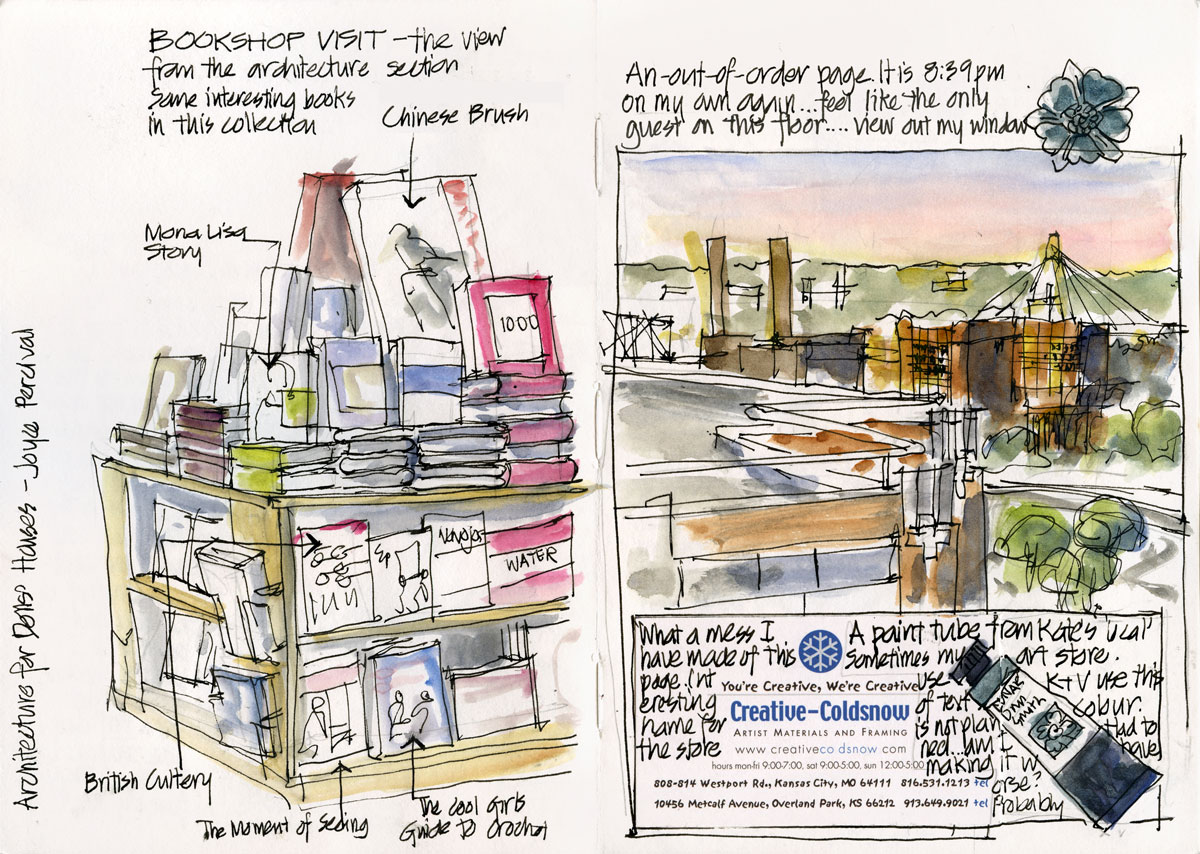 BOOKSHOP VISIT - the view
from the architecture section
Some interesting books
in this collection
Chinese Brush
Mona Lisa
Story
1000
Navajos
WATER
Architecture for Dolls' Houses - Joyce Percival
British Cutlery
The Moment of Seeing
The Cool Girls
Guide to Crochet
An-out-of-order page. It is 8:39pm
on my own again...feel like the only
guest on this floor.... view out my window
What a mess I
have made of this
page. Int
eresting
name for
the store
You're Creative, We're Creative
Creative-Coldsnow
ARTIST MATERIALS AND FRAMING
www creativeco dsnow com
hours mon-fri 9:00-7:00, sat 9:00-5:00, sun 12:00-5:00
808-814 Westport Rd., Kansas City, MO 64111 816.531.1213 tel
10456 Metcalf Avenue, Overland Park, KS 66212 913.649.9021 tel
A paint tube from Kate's 'local'
art store.
K+V use this
colour.
Had to
have
it
Sometimes my
use
of text
is not plan
ned...am I
making it w
orse?
Probably
DANIEL
SMITH